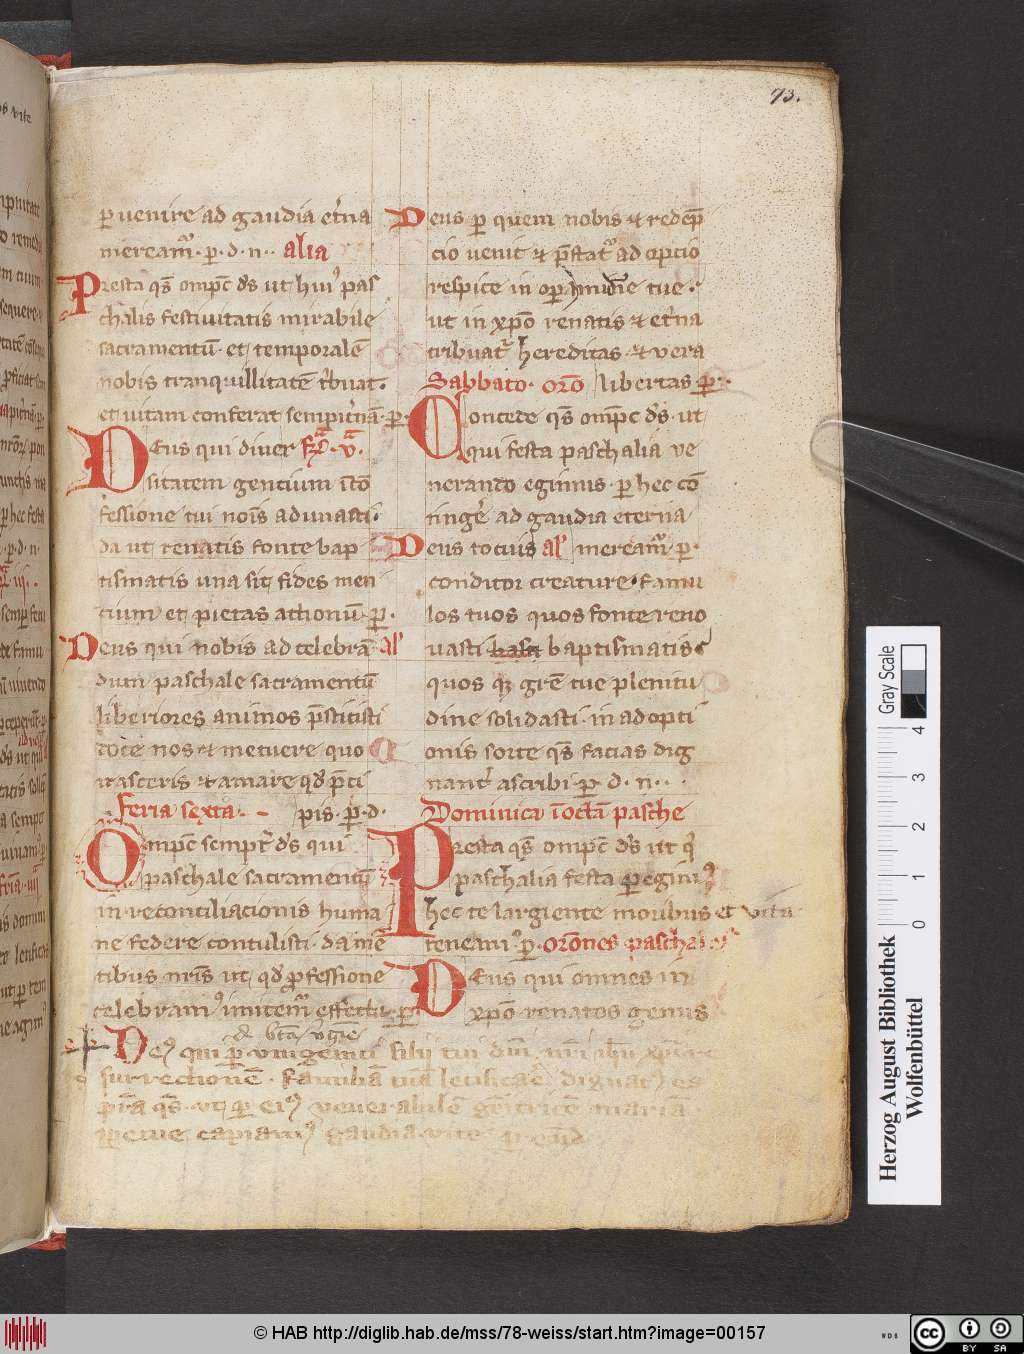 73.
ꝑuenire ad gaudia et̾na
mereamᷣ. ꝑ. d. n. alia
Presta qs̄ omp̄c ds̄ ut huiꝰ pas
chalis festiuitatis mirabile
sacramentū. et temporalē
nobis tranquillitatē tͥbuat.
et uitam conferat sempit̾nā. ꝑ.
Deus qui diuer fr̄a. v̄a.
sitatem gentium ī cō
fessione tui nois̄ adunasti.
da ut renatis fonte bap
tismatis una sit fides men
tium et pietas actionū ꝑ.
Deus qui nobis ad celebrā al'
dum paschale sacramentū
liberiores animos p̄stitisti
doce nos ⁊ metuere quo
irasceris ⁊ amare qd̄ p̄ci
Feria sexta. pis. ꝑ. d.
Omp̄c semꝑ ds̄ qui
paschale sacramentū
in reconciliacionis huma
ne federe contulisti. da mē
tibus nr̄is ut qd̄ ꝓfessione
celebramꝰ imitemᷣ effectu. ꝑ
Deus ꝑ quem nobis ⁊ redēp
cio uenit ⁊ p̄statᷣ adopcio
respice in oꝑa mīe tue.
ut in xp̄o renatis ⁊ et̾na
tribuatᷣ hereditas ⁊ vera
Sabbato. oro libertas ꝑ.
Concede qs̄ omp̄c ds̄. ut
qui festa paschalia ve
nerando egimus. ꝑ hec cō
tinge̾ ad gaudia eterna
Deus tocius al' mereamᷣ. ꝑ.
conditor creature. famu
los tuos quos fonte reno
uasti baptismatis
quos qꝫ grē tue plenitu
dine solidasti. in adopti
onis sorte qs̄ facias dig
nant̾ ascribi. ꝑ. d. n.
Dominica ī octā pasche
Presta qs̄ omp̄c ds̄ ut qͥ
paschalia festa ꝑegimꝰ
hec te largiente moribus et vita
teneamꝰ. ꝑ. orōnes paschales
Deus qui omnes in
xp̄o renatos genus
d' bt̄a v̾gīe
Deꝰ qui ꝑ vnigeniti filij tui dn̄i nr̄i ihū xp̄i re
surrectionē. familiā tuā letificare dignatꝰ es
p̄sta qs̄. vt ꝑ eiꝰ venerabilē gēitricē mariā
ꝑpetue capiamꝰ gaudia vite ꝑ eūd
Gray Scale
0 1 2 3 4
Herzog August Bibliothek
Wolfenbüttel
© HAB http://diglib.hab.de/mss/78-weiss/start.htm?image=00157
cc BY SA